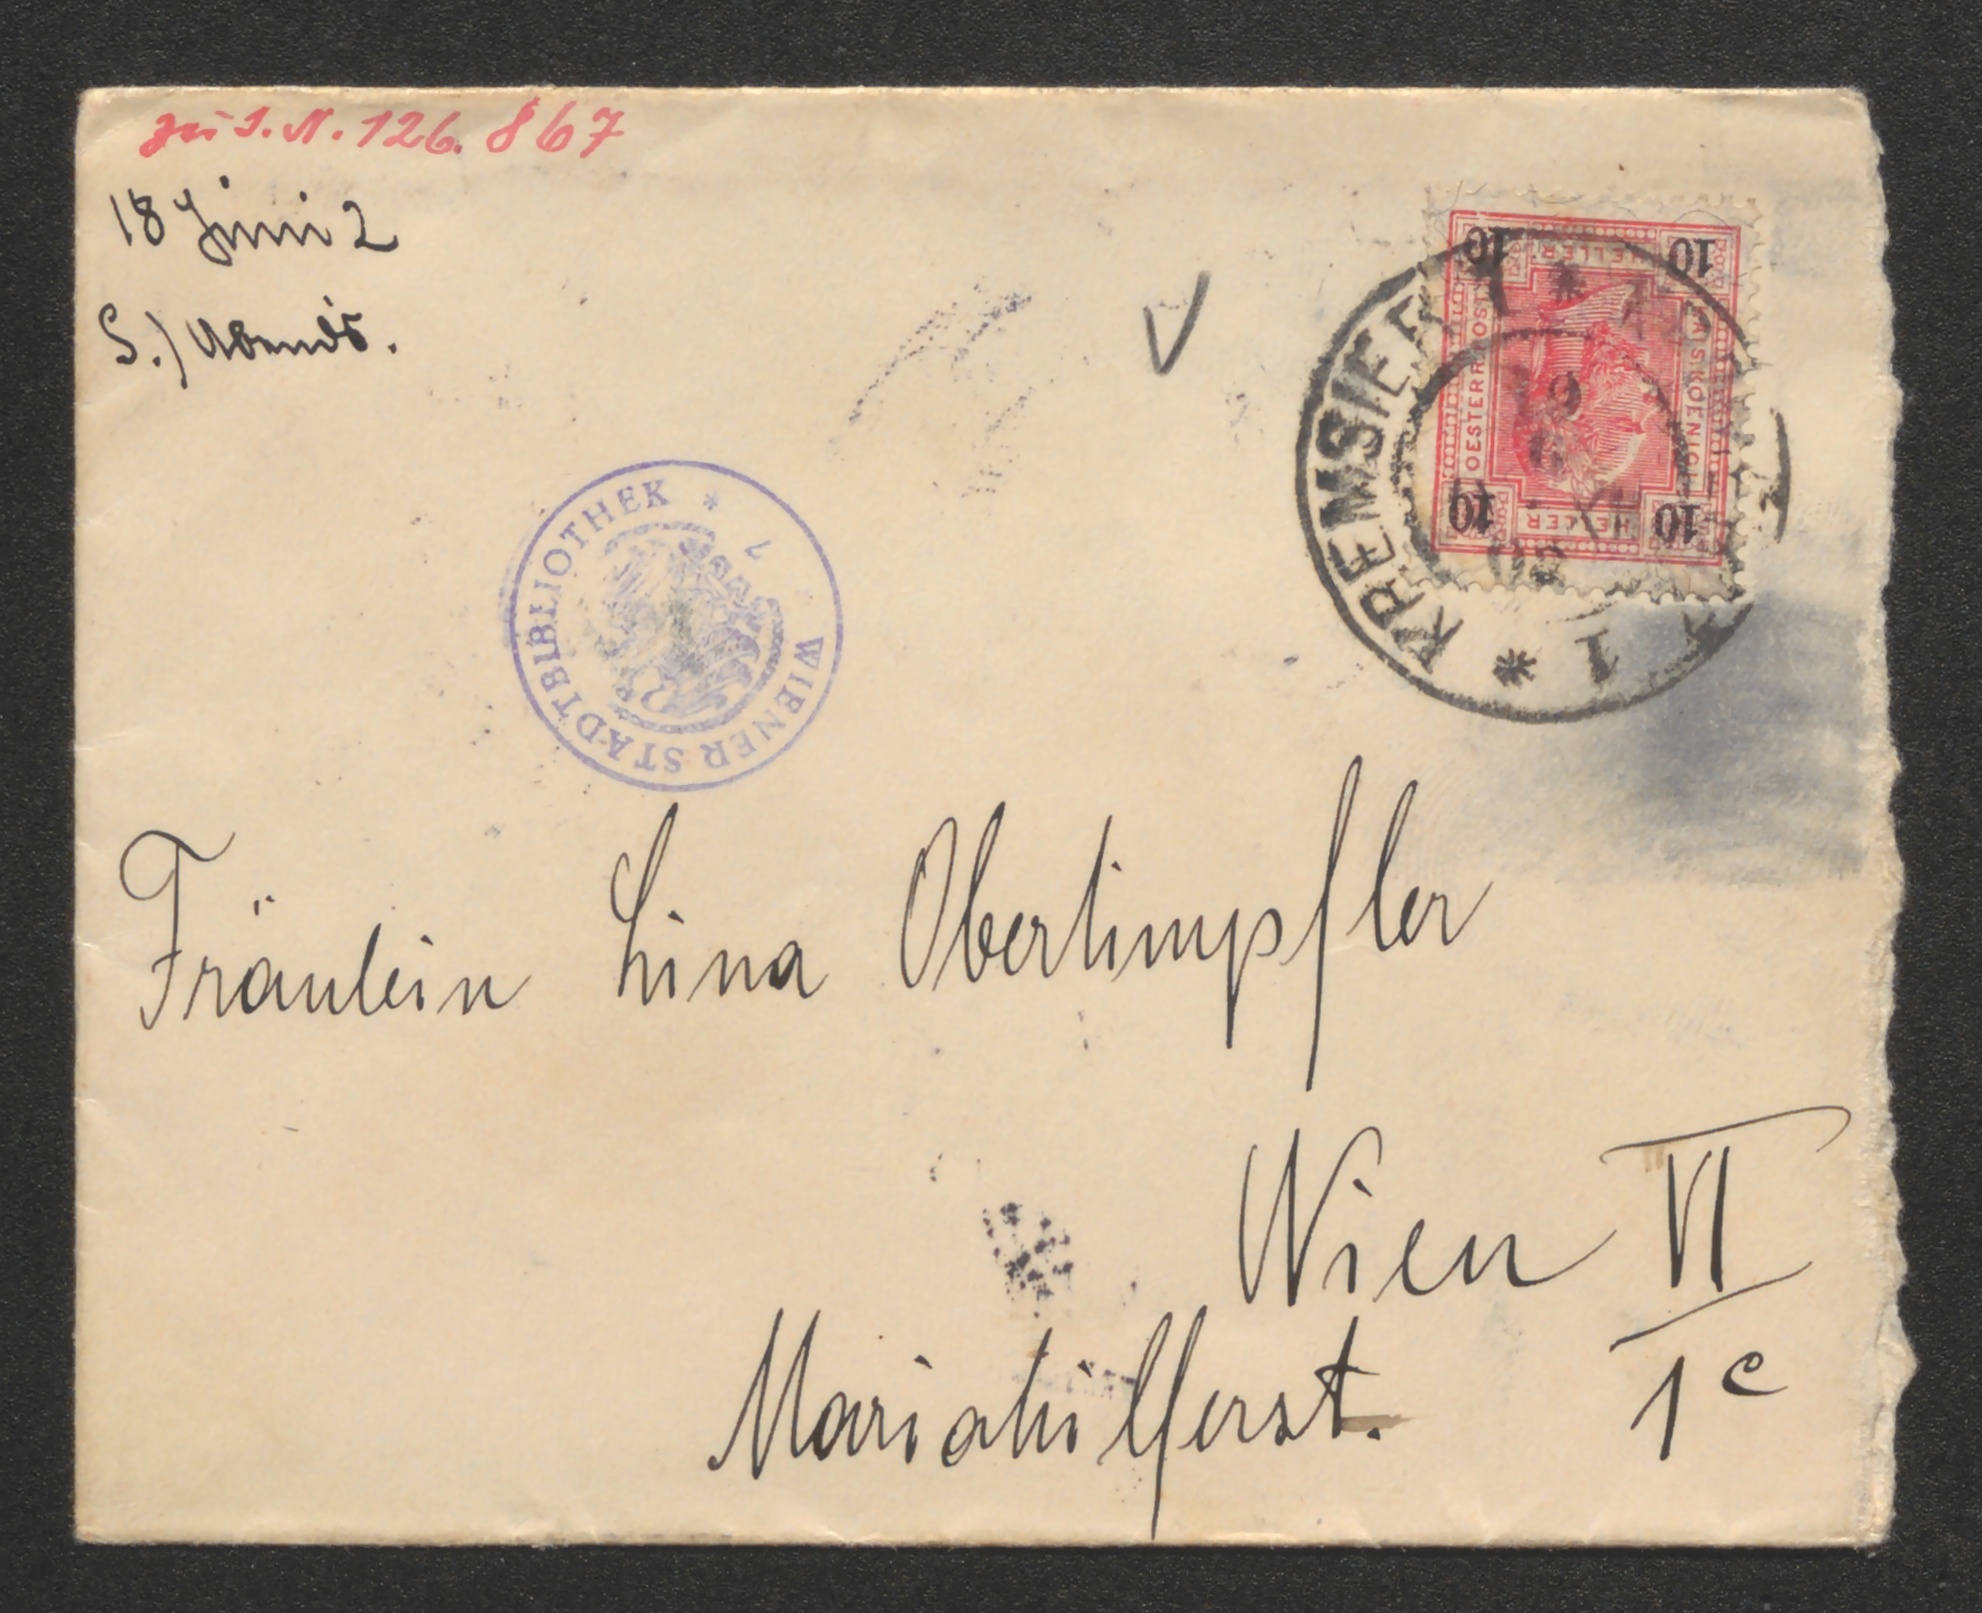 zu I.N. 126.867
18 Juni 2
S.) Abends.
10 HELLER 10
KAISKOENIGL
OESTERR POST
10 HELLER 10
KREMSIER
19
6
02
* 1 *
WIENER STADTBIBLIOTHEK *
Fräulein Lina Obertimpfler
Wien VI
Mariahilferst. 1c